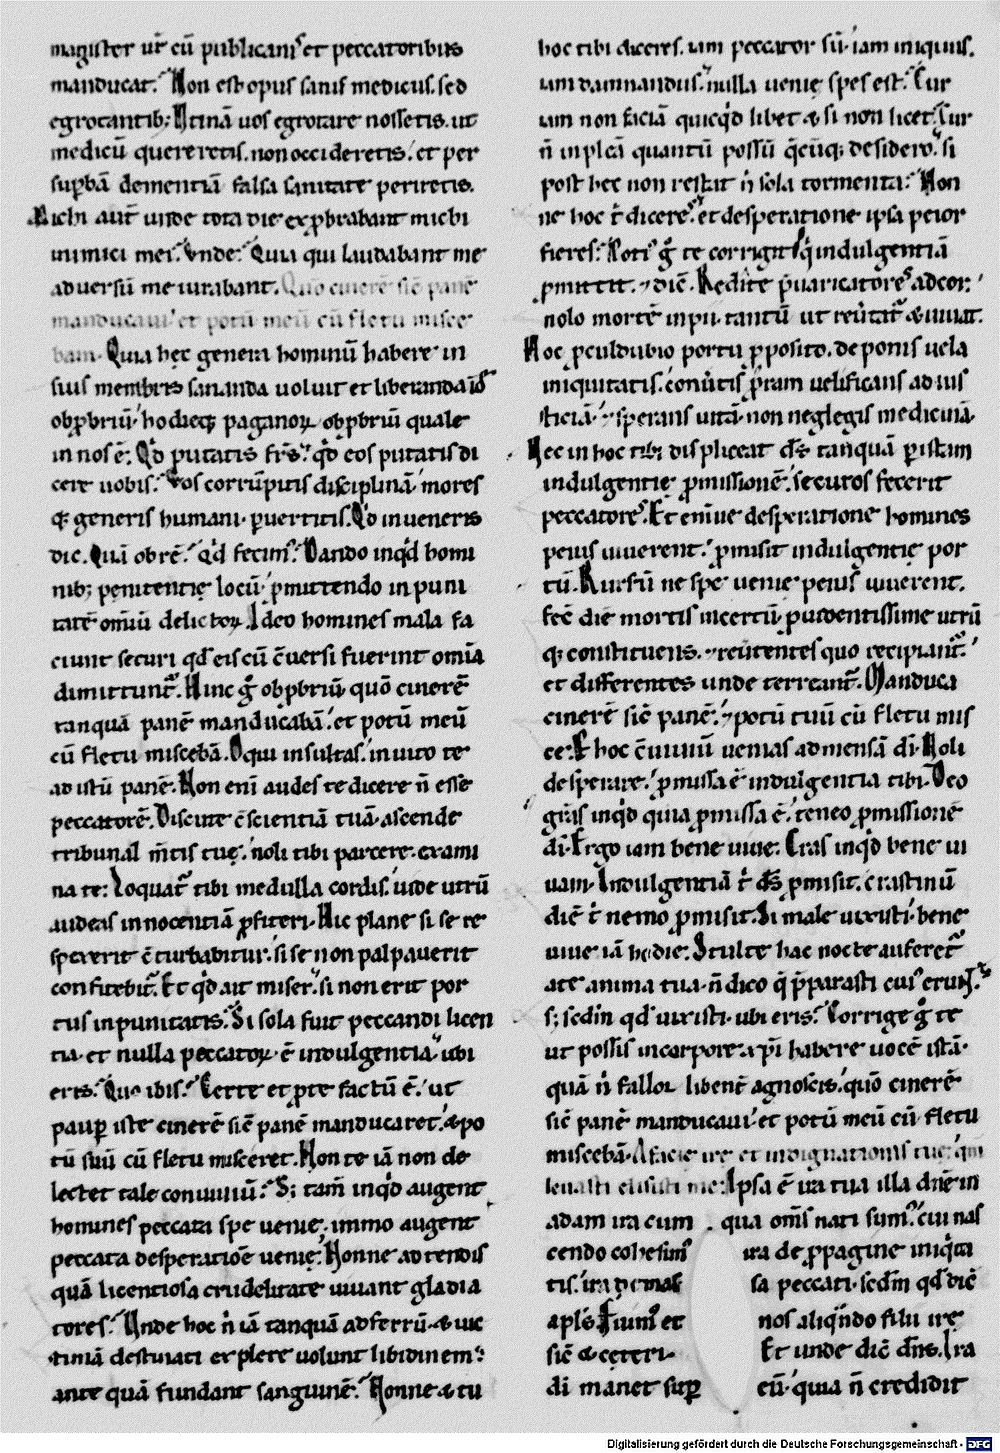 magister ur̄ cū publicanis et peccatoribus
manducat. Non est opus sanis medicus. sed
egrotantib; Utinā uos egrotare nossetis. ut
medicū quereretis. non occideretis. et per
supbā dementiā falsa sanitate periretis.
Michi aut̄ unde tota die exp̱brabant michi
inimici mei. Unde. Quia qui laudabant me
aduersū me iurabant. Quo cinerē sic̄ panē
manducaui et potū meū cū fletu misce
bam. Quia hęc genera hominū habere in
suis membris sananda uoluit et liberanda
obp̱briū. hodieq; paganoꝝ obp̱briū quale
in nos ē. Qd̄ putatis frs̄. qd̄ eos putatis di
cere nobis. Vos corrūpitis disciplinā. mores
q; generis humani puertitis. Qd̄ inueneris
dic. Quā ob rē. Qd̄ fecim᷒. Dando inqd̄ homi
nib; penitentię locū. p̱mittendo inpuni
tatē omīū delictoꝝ. Ideo homines mala fa
ciunt securi qd̄ eis cū c̄uersi fuerint omīa
dimittunt᷑. Hinc g̊ obp̱briū quō cinerē
tanquā panē manducabā. et potū meū
cū fletu miscebā. O qui insultas. inuito te
ad istū panē. Non enī audes te dicere n̄ esse
peccatorē. Discute c̄scientiā tuā. ascende
tribunal m̄tis tuę. noli tibi parcere. exami
na te. Loquat᷑ tibi medulla cordis. uide utrū
audeas innocentiā p̱fiteri. Hic plane si se re
spexerit c̄turbabitur. si se non palpauerit
confitebit᷑. Et qd̄ ait miser. si non erit por
tus inpunitatis. Si sola fuit peccandi licen
tia. et nulla peccatoꝝ ē indulgentia ubi
eris. Quo ibis. Certe et p̱ te factū ē. ut
paup̱ iste cinerē sic̄ panē manducaret. & po
tū suū cū fletu misceret. Non te iā non de
lectet tale conuiuiū. S; tam̄ inqd̄ augent
homines peccata spe uenię. immo augent
peccata desperatiōe uenię. Nonne adtendis
quā licentiosa crudelitate uiuant gladia
tores. Unde hoc n̄ iā tanquā ad ferrū & uic
timā destinati explere uolunt libidinem.
ante quā fundant sanguinē. Nonne & tu
hoc tibi diceres. iam peccator sū. iam iniquus.
iam damnandus. nulla uenię spes est. Cur
iam non faciā quicqd̄ libet & si non licet. Cur
n̄ inpleā quantū possū q̄cūq; desidero. si
post hec non restat n̄ sola tormenta. Non
ne hoc t̄ diceres. et desperatione ipsa peior
fieres. Poti᷒ g̊ te corrigit q̊ indulgentiā
p̱mittit. & dic̄. Redite p̄uaricatores ad cor.
nolo mortē inpii. tantū ut reūtat᷑ & uiuat.
Hoc p̱cul dubio portu p̱posito. deponis uela
iniquitatis. conūtis p̱ram uelificans ad ius
ticiā. & sperans uitā. non neglegis medicinā.
Nec in hoc tibi displiceat ds̄ tanquā p̱ istam
indulgentię p̱missionē. securos fecerit
peccatores. Et enī ne desperatione homines
peius uiuerent. p̱misit indulgentię por
tū. Rursū ne spe uenię peius uiuerent.
fec̄ diē mortis incertū. prudentissime utrū
q; constituens. & reūtentes quo recipiant᷑.
et differentes unde terreant᷑. Manduca
cinerē sic̄ panē. & potū tuū cū fletu mis
ce. Et hoc c̄uiuiū uenias ad mensā di̅. Noli
desperare. p̱missa ē indulgentia tibi. Deo
grās inqd̄ quia p̱missa ē. teneo p̱missionē
di̅. Ergo iam bene uiue. Cras inqd̄ bene ui
uam. Indulgentiā t̄ ds̄ p̱misit. crastinū
diē t̄ nemo p̱misit. Si male uixisti. bene
uiue iā hodie. Stulte hac nocte auferet᷑
a te anima tua. n̄ dico q̄ p̄parasti cui᷒ erunt
s; scd̄m qd̄ uixisti. ubi eris. Corrige g̊ te
ut possis in corpore xp̄i habere uocē istā.
quā n̄ fallor libent᷑ agnoscis. quō cinerē
sic̄ panē manducaui. et potū meū cū fletu
miscebā. A facie ire et indignationis tuę. qm̄
leuasti elisisti me. Ipsa ē ira tua illa dn̄e in
adam ira cum qua om̄s nati sum᷒. cui nas
cendo cohesim᷒ ira de p̱pagine iniqta
tis. ira de mas sa peccati. scd̄m qd̄ dic̄
apl̄s. Fuim᷒ et nos aliqn̄do filii irę
sic̄ & ceteri. Et unde dic̄ dn̄s. Ira
di̅ manet sup̱ eū. quia n̄ credidit
Digitalisierung gefördert durch die Deutsche Forschungsgemeinschaft - DFG